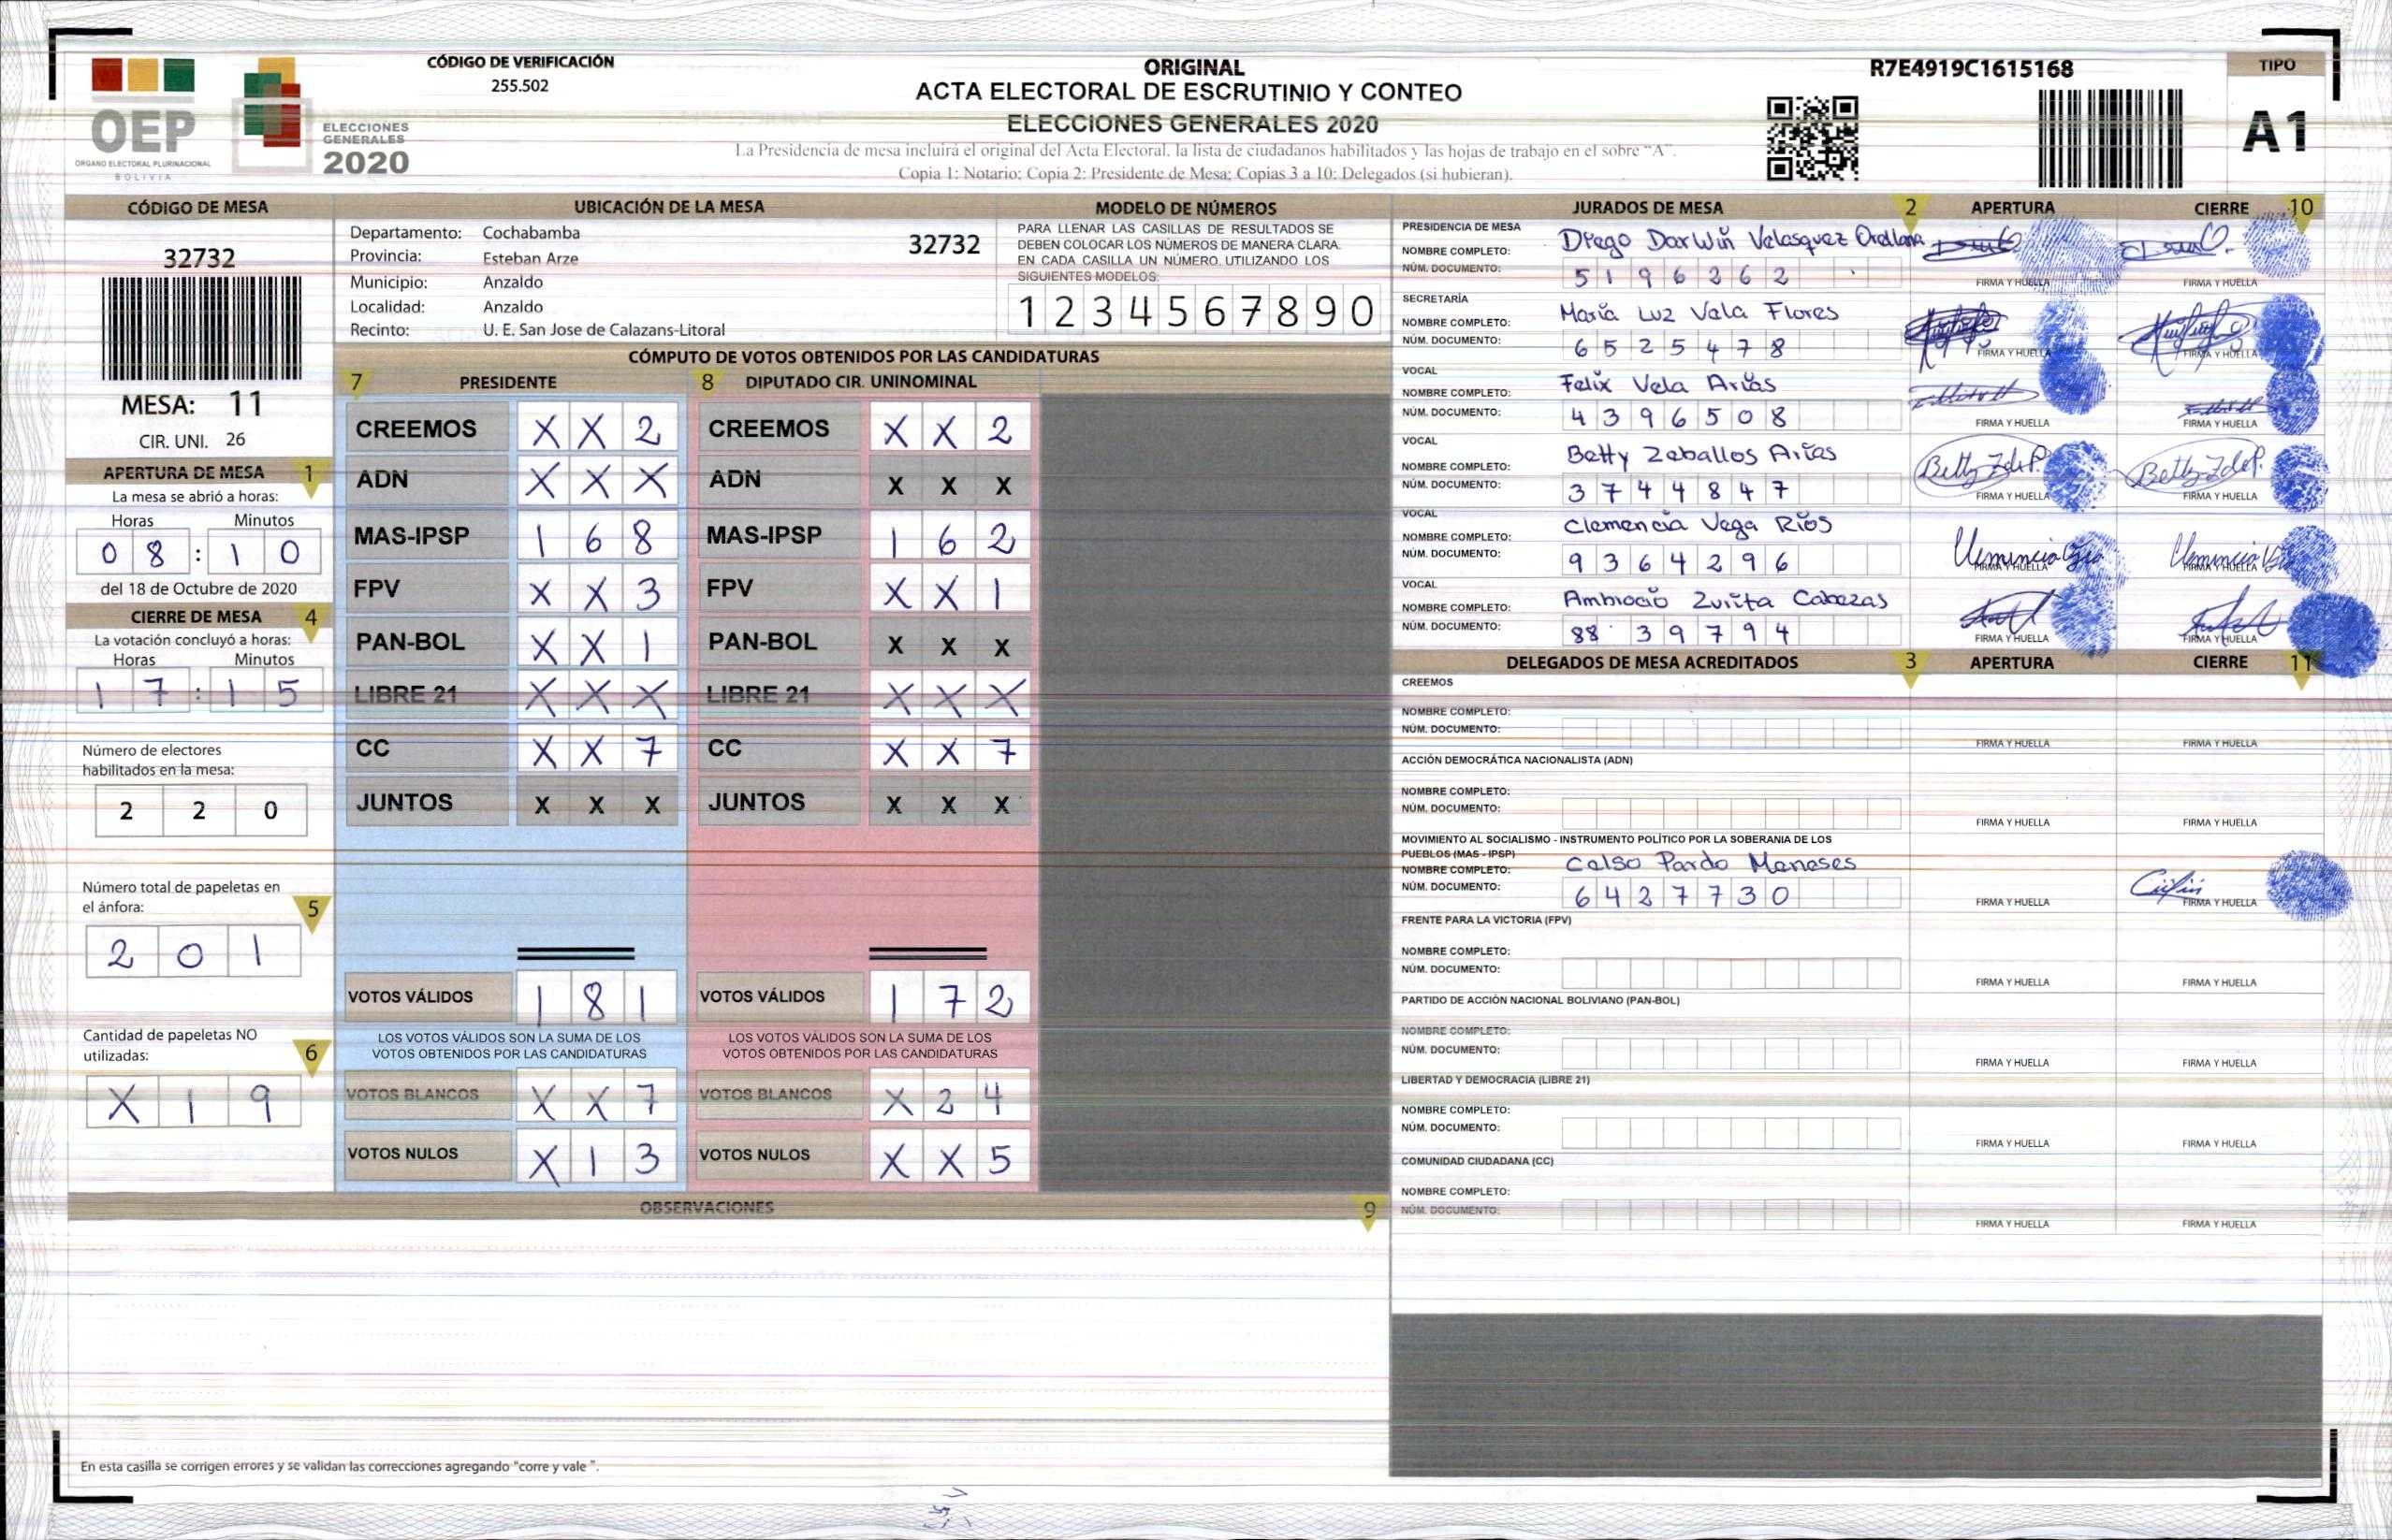 CÓDIGO DE VERIFICACIÓN
255.502
ORIGINAL
ACTA ELECTORAL DE ESCRUTINIO Y CONTEO
ELECCIONES GENERALES 2020
La Presidencia de mesa incluirá el original del Acta Electoral, la lista de ciudadanos habilitados y las hojas de trabajo en el sobre "A".
Copia 1: Notario; Copia 2: Presidente de Mesa; Copias 3 a 10: Delegados (si hubieran).
R7E4919C1615168
TIPO
A1
OEP
ÓRGANO ELECTORAL PLURINACIONAL
BOLIVIA
ELECCIONES
GENERALES
2020
CÓDIGO DE MESA
32732
MESA: 11
CIR. UNI. 26
APERTURA DE MESA 1
La mesa se abrió a horas:
Horas Minutos
0 8 : 1 0
del 18 de Octubre de 2020
CIERRE DE MESA 4
La votación concluyó a horas:
Horas Minutos
1 7 : 1 5
Número de electores
habilitados en la mesa:
2 2 0
Número total de papeletas en
el ánfora: 5
2 0 1
Cantidad de papeletas NO
utilizadas: 6
X 1 9
UBICACIÓN DE LA MESA
Departamento: Cochabamba
32732
Provincia: Esteban Arze
Municipio: Anzaldo
Localidad: Anzaldo
Recinto: U. E. San Jose de Calazans-Litoral
MODELO DE NÚMEROS
PARA LLENAR LAS CASILLAS DE RESULTADOS SE
DEBEN COLOCAR LOS NÚMEROS DE MANERA CLARA.
EN CADA CASILLA UN NÚMERO, UTILIZANDO LOS
SIGUIENTES MODELOS:
1 2 3 4 5 6 7 8 9 0
CÓMPUTO DE VOTOS OBTENIDOS POR LAS CANDIDATURAS
7 PRESIDENTE 8 DIPUTADO CIR. UNINOMINAL
CREEMOS X X 2 CREEMOS X X 2
ADN X X X ADN X X X
MAS-IPSP 1 6 8 MAS-IPSP 1 6 2
FPV X X 3 FPV X X 1
PAN-BOL X X 1 PAN-BOL X X X
LIBRE 21 X X X LIBRE 21 X X X
CC X X 7 CC X X 7
JUNTOS X X X JUNTOS X X X
VOTOS VÁLIDOS 1 8 1 VOTOS VÁLIDOS 1 7 2
LOS VOTOS VÁLIDOS SON LA SUMA DE LOS LOS VOTOS VÁLIDOS SON LA SUMA DE LOS
VOTOS OBTENIDOS POR LAS CANDIDATURAS VOTOS OBTENIDOS POR LAS CANDIDATURAS
VOTOS BLANCOS X X 7 VOTOS BLANCOS X 2 4
VOTOS NULOS X 1 3 VOTOS NULOS X X 5
OBSERVACIONES 9
En esta casilla se corrigen errores y se validan las correcciones agregando "corre y vale ".
JURADOS DE MESA 2 APERTURA CIERRE 10
PRESIDENCIA DE MESA
NOMBRE COMPLETO: Diego Darwin Velasquez Orellana
NÚM. DOCUMENTO: 5 1 9 6 2 6 2
FIRMA Y HUELLA FIRMA Y HUELLA
SECRETARÍA
NOMBRE COMPLETO: María Luz Vela Flores
NÚM. DOCUMENTO: 6 5 2 5 4 7 8
FIRMA Y HUELLA FIRMA Y HUELLA
VOCAL
NOMBRE COMPLETO: Felix Vela Arias
NÚM. DOCUMENTO: 4 3 9 6 5 0 8
FIRMA Y HUELLA FIRMA Y HUELLA
VOCAL
NOMBRE COMPLETO: Betty Zeballos Arias
NÚM. DOCUMENTO: 3 7 4 4 8 4 7
FIRMA Y HUELLA FIRMA Y HUELLA
VOCAL
NOMBRE COMPLETO: Clemencia Vega Rios
NÚM. DOCUMENTO: 9 3 6 4 2 9 6
FIRMA Y HUELLA FIRMA Y HUELLA
VOCAL
NOMBRE COMPLETO: Ambrocio Zurita Cabezas
NÚM. DOCUMENTO: 88 3 9 7 9 4
FIRMA Y HUELLA FIRMA Y HUELLA
DELEGADOS DE MESA ACREDITADOS 3 APERTURA CIERRE 11
CREEMOS
NOMBRE COMPLETO:
NÚM. DOCUMENTO:
FIRMA Y HUELLA FIRMA Y HUELLA
ACCIÓN DEMOCRÁTICA NACIONALISTA (ADN)
NOMBRE COMPLETO:
NÚM. DOCUMENTO:
FIRMA Y HUELLA FIRMA Y HUELLA
MOVIMIENTO AL SOCIALISMO - INSTRUMENTO POLÍTICO POR LA SOBERANIA DE LOS
PUEBLOS (MAS - IPSP)
NOMBRE COMPLETO: Celso Pardo Meneses
NÚM. DOCUMENTO: 6 4 2 7 7 3 0
FIRMA Y HUELLA FIRMA Y HUELLA
FRENTE PARA LA VICTORIA (FPV)
NOMBRE COMPLETO:
NÚM. DOCUMENTO:
FIRMA Y HUELLA FIRMA Y HUELLA
PARTIDO DE ACCIÓN NACIONAL BOLIVIANO (PAN-BOL)
NOMBRE COMPLETO:
NÚM. DOCUMENTO:
FIRMA Y HUELLA FIRMA Y HUELLA
LIBERTAD Y DEMOCRACIA (LIBRE 21)
NOMBRE COMPLETO:
NÚM. DOCUMENTO:
FIRMA Y HUELLA FIRMA Y HUELLA
COMUNIDAD CIUDADANA (CC)
NOMBRE COMPLETO:
NÚM. DOCUMENTO:
FIRMA Y HUELLA FIRMA Y HUELLA